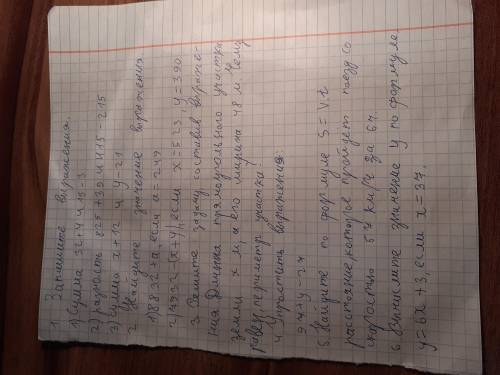 1. Запишите выражения.
1) Сумма 32+4 и 15-3
2) разность 825+30 и 415-215
3) сумма x+12 и y-31
2 Найдите значение выражения
1) 8832+a, если a=249
2) 7932-(x+y), если x=523 y=390
3. Решите задачу составив выраже-
ния Длина прямоугольного участка
земли x м, а его ширина 48 м. Чему
равен периметр участка
4. Упростить выражения
97+y-27
5. Найдите по формуле S=V.t
расстояние, которое пройдет поезд со
скоростью 57 км/ч за 6ч.
6 Вычислите значение y по формуле
y=6x+3, если x=37.